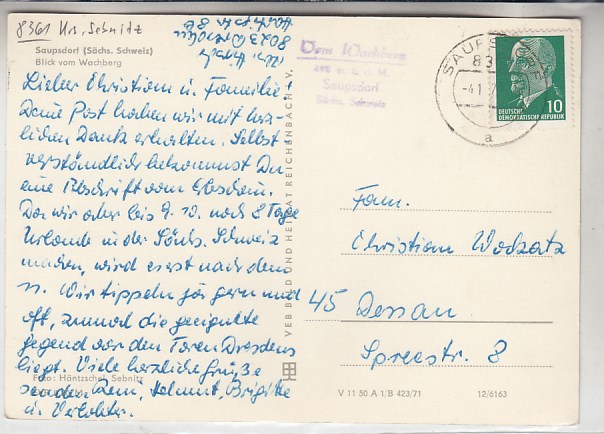 8361 Krs. Sebnitz
Saupsdorf (Sächs. Schweiz)
Blick vom Wachberg
8023 Dresden
Lieber Christian u. Familie!
Deine Post haben wir mit herz-
lichen Dank erhalten. Selbst
verständlich bekommst Du
eine Abschrift vom Erbschein.
Da wir aber bis 9. 10. noch 8 Tage
Urlaub in der Sächs. Schweiz
machen, wird es erst nach dem
11. Wir tippeln ja gern und
oft, zumal die geeignete
Gegend vor den Toren Dresdens
liegt. Viele herzliche Grüße
senden Dem, Helmut, Brigitte
u. Verlobter.
Foto: Häntzschel, Sebnitz
VEB BILD UND HEIMAT REICHENBACH I. V.
Vom Wachberg
496 m ü. d. M.
Saupsdorf
Sächs. Schweiz
83
-4.1
a
10
DEUTSCHE
DEMOKRATISCHE REPUBLIK
Fam.
Christian Wodzatz
45 Dessau
Spreestr. 8
V 11 50 A 1/B 423/71
12/6163